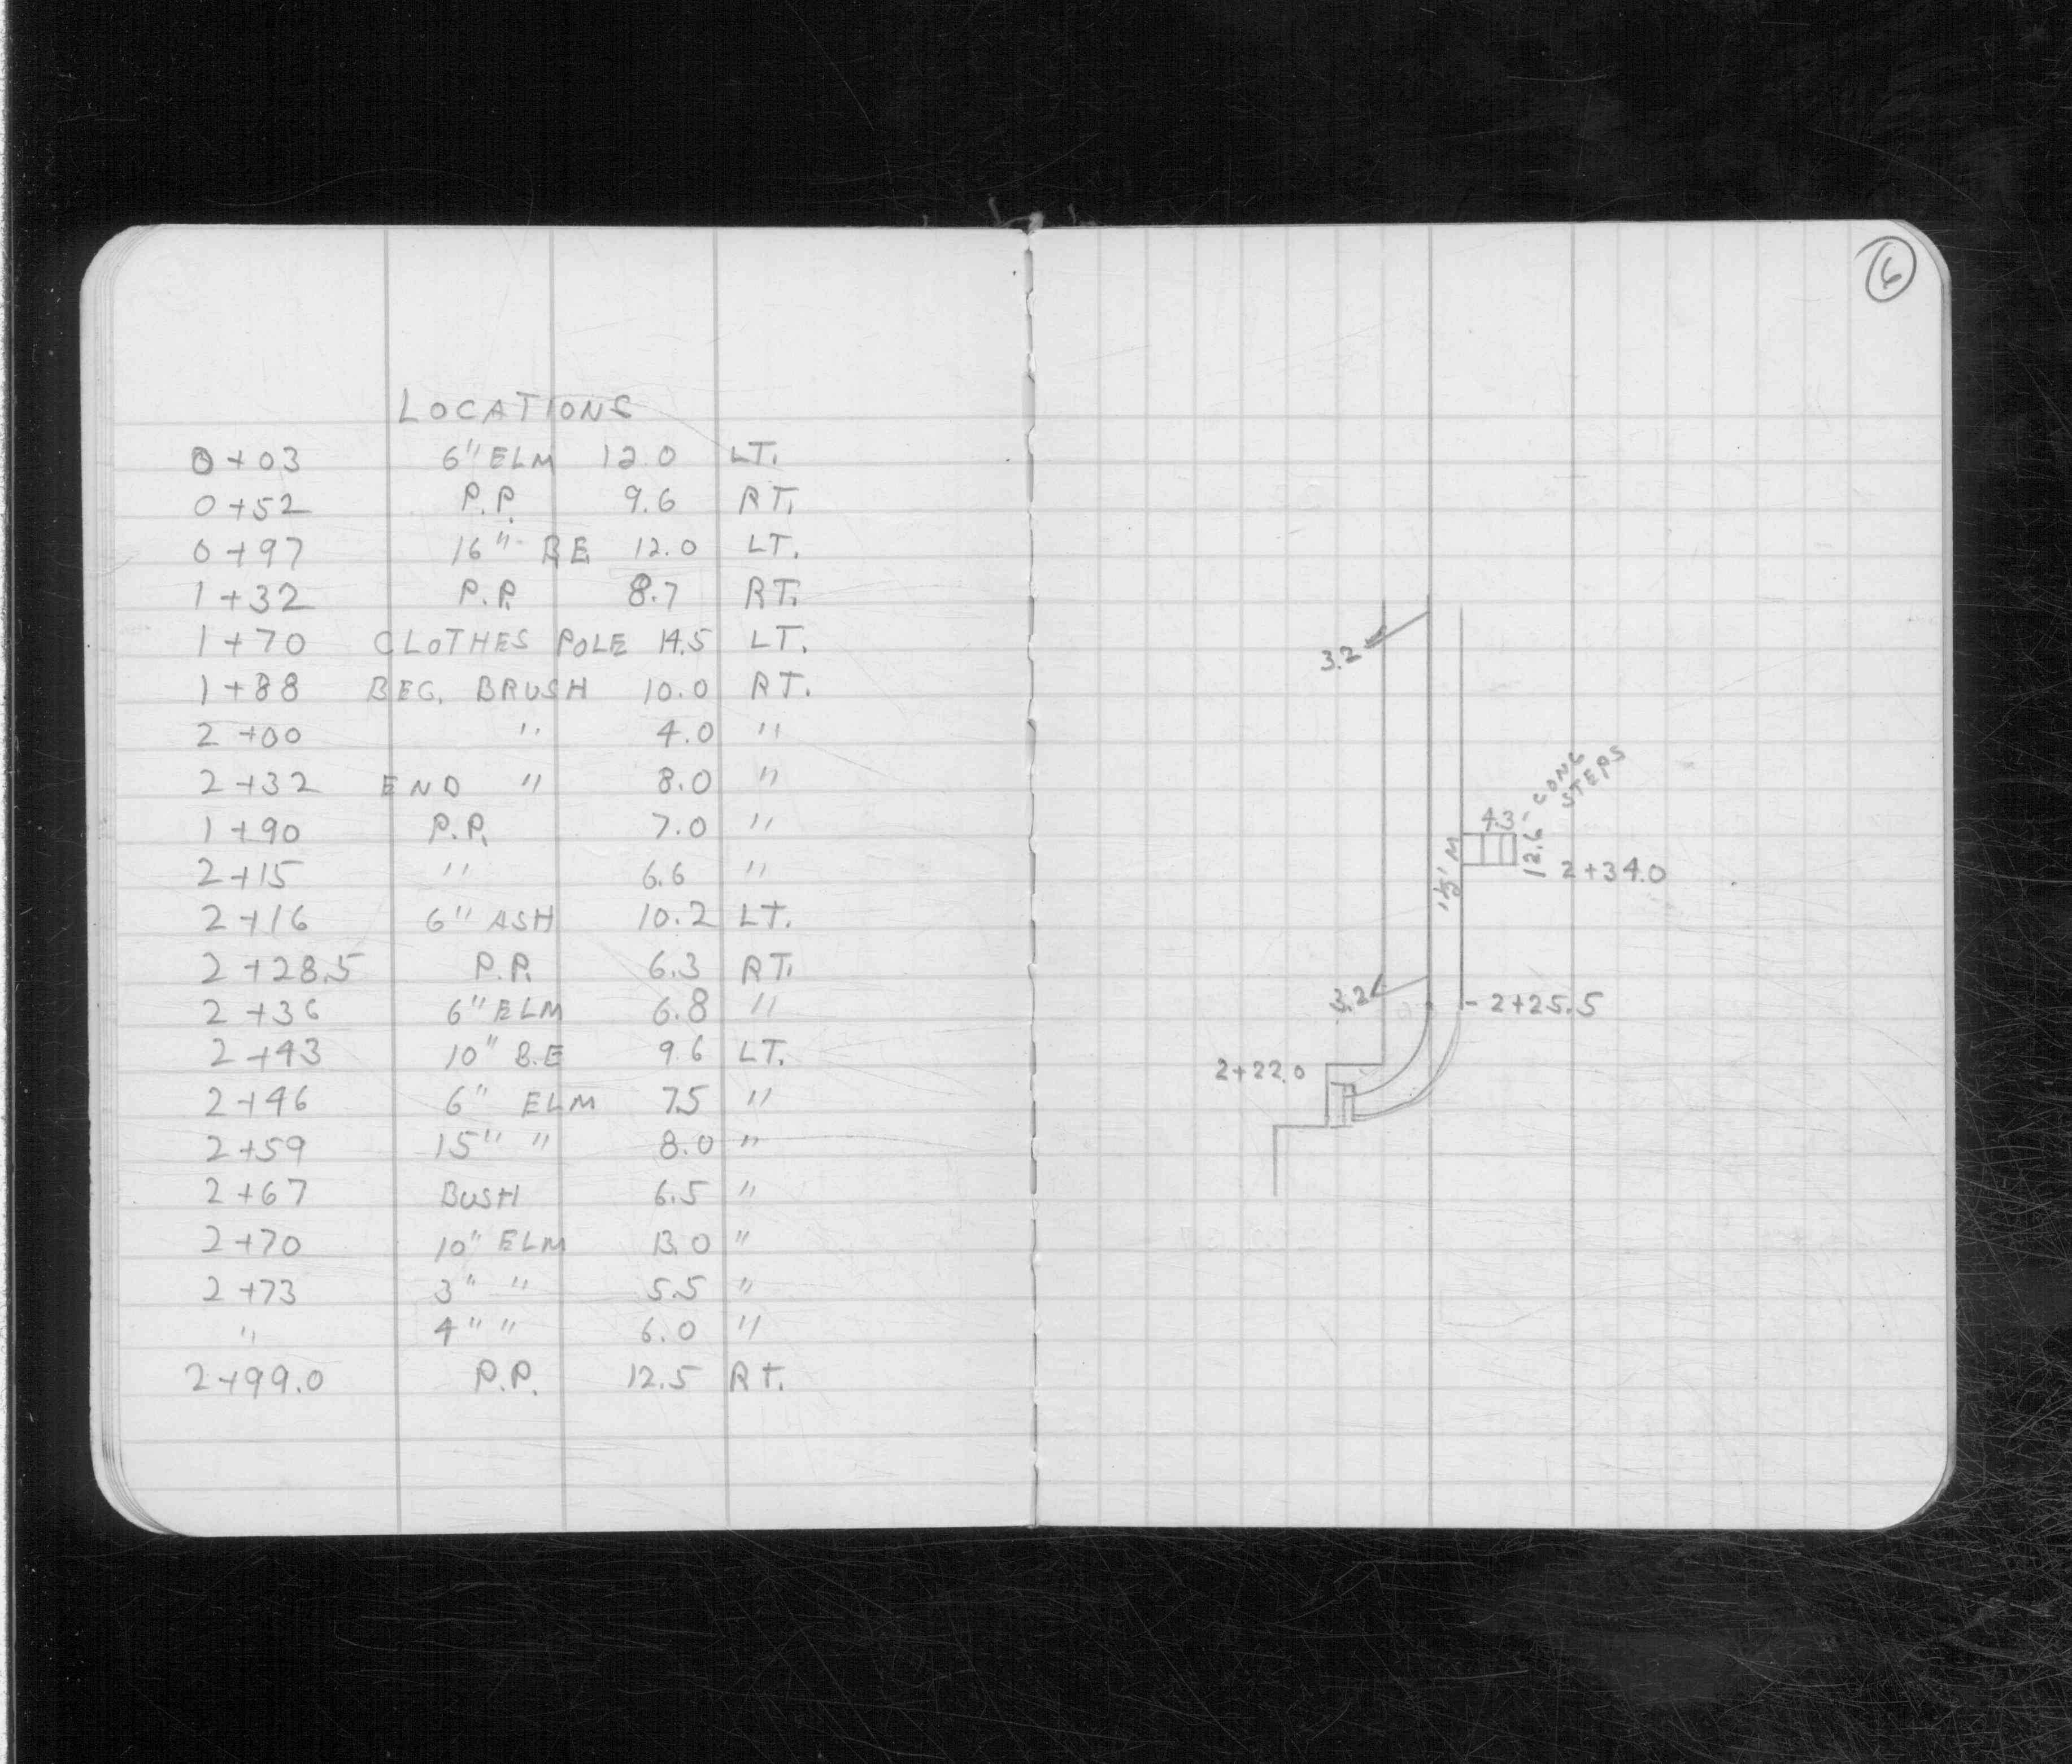 LOCATIONS
0+03 6" ELM 12.0 LT.
0+52 P.P. 9.6 RT.
0+97 16" B.E. 12.0 LT.
1+32 P.P. 8.7 RT.
1+70 CLOTHES POLE 14.5 LT.
1+88 BEG. BRUSH 10.0 RT.
2+00 " 4.0 "
2+32 END " 8.0 "
1+90 P.P. 7.0 "
2+15 " 6.6 "
2+16 6" ASH 10.2 LT.
2+28.5 P.P. 6.3 RT.
2+36 6" ELM 6.8 "
2+43 10" B.E 9.6 LT.
2+46 6" ELM 7.5 "
2+59 15" " 8.0 "
2+67 BUSH 6.5 "
2+70 10" ELM 13.0 "
2+73 3" " 5.5 "
" 4" " 6.0 "
2+99.0 P.P. 12.5 RT.
6
3.2
CONC
STEPS
4.3
2+34.0
3.2
2+25.5
2+22.0